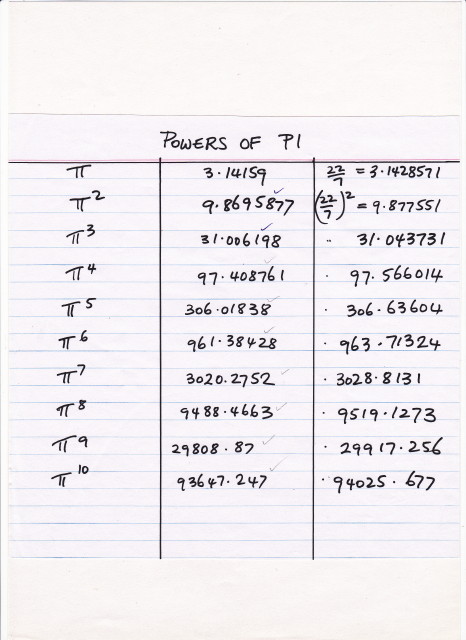 POWERS OF PI
π 3.14159 22/7 = 3.1428571
π² 9.8695877 (22/7)² = 9.877551
π³ 31.006198 " 31.043731
π⁴ 97.408761 · 97.566014
π⁵ 306.01838 · 306.63604
π⁶ 961.38428 · 963.71324
π⁷ 3020.2752 · 3028.8131
π⁸ 9488.4663 · 9519.1273
π⁹ 29808.87 · 29917.256
π¹⁰ 93647.247 · 94025.677